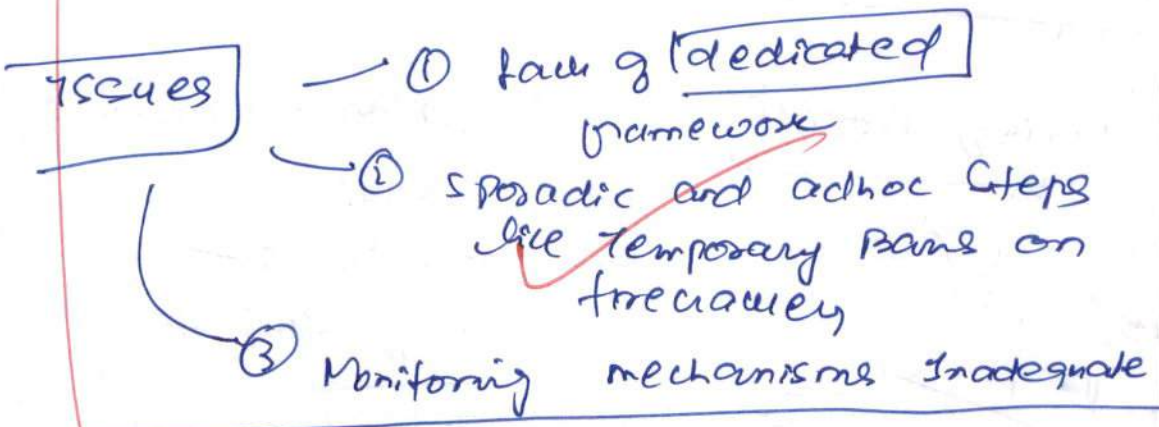 Issues
① Lack of dedicated
framework
② Sporadic and adhoc Steps
like Temporary Bans on
firecrackers
③ Monitoring mechanisms Inadequate